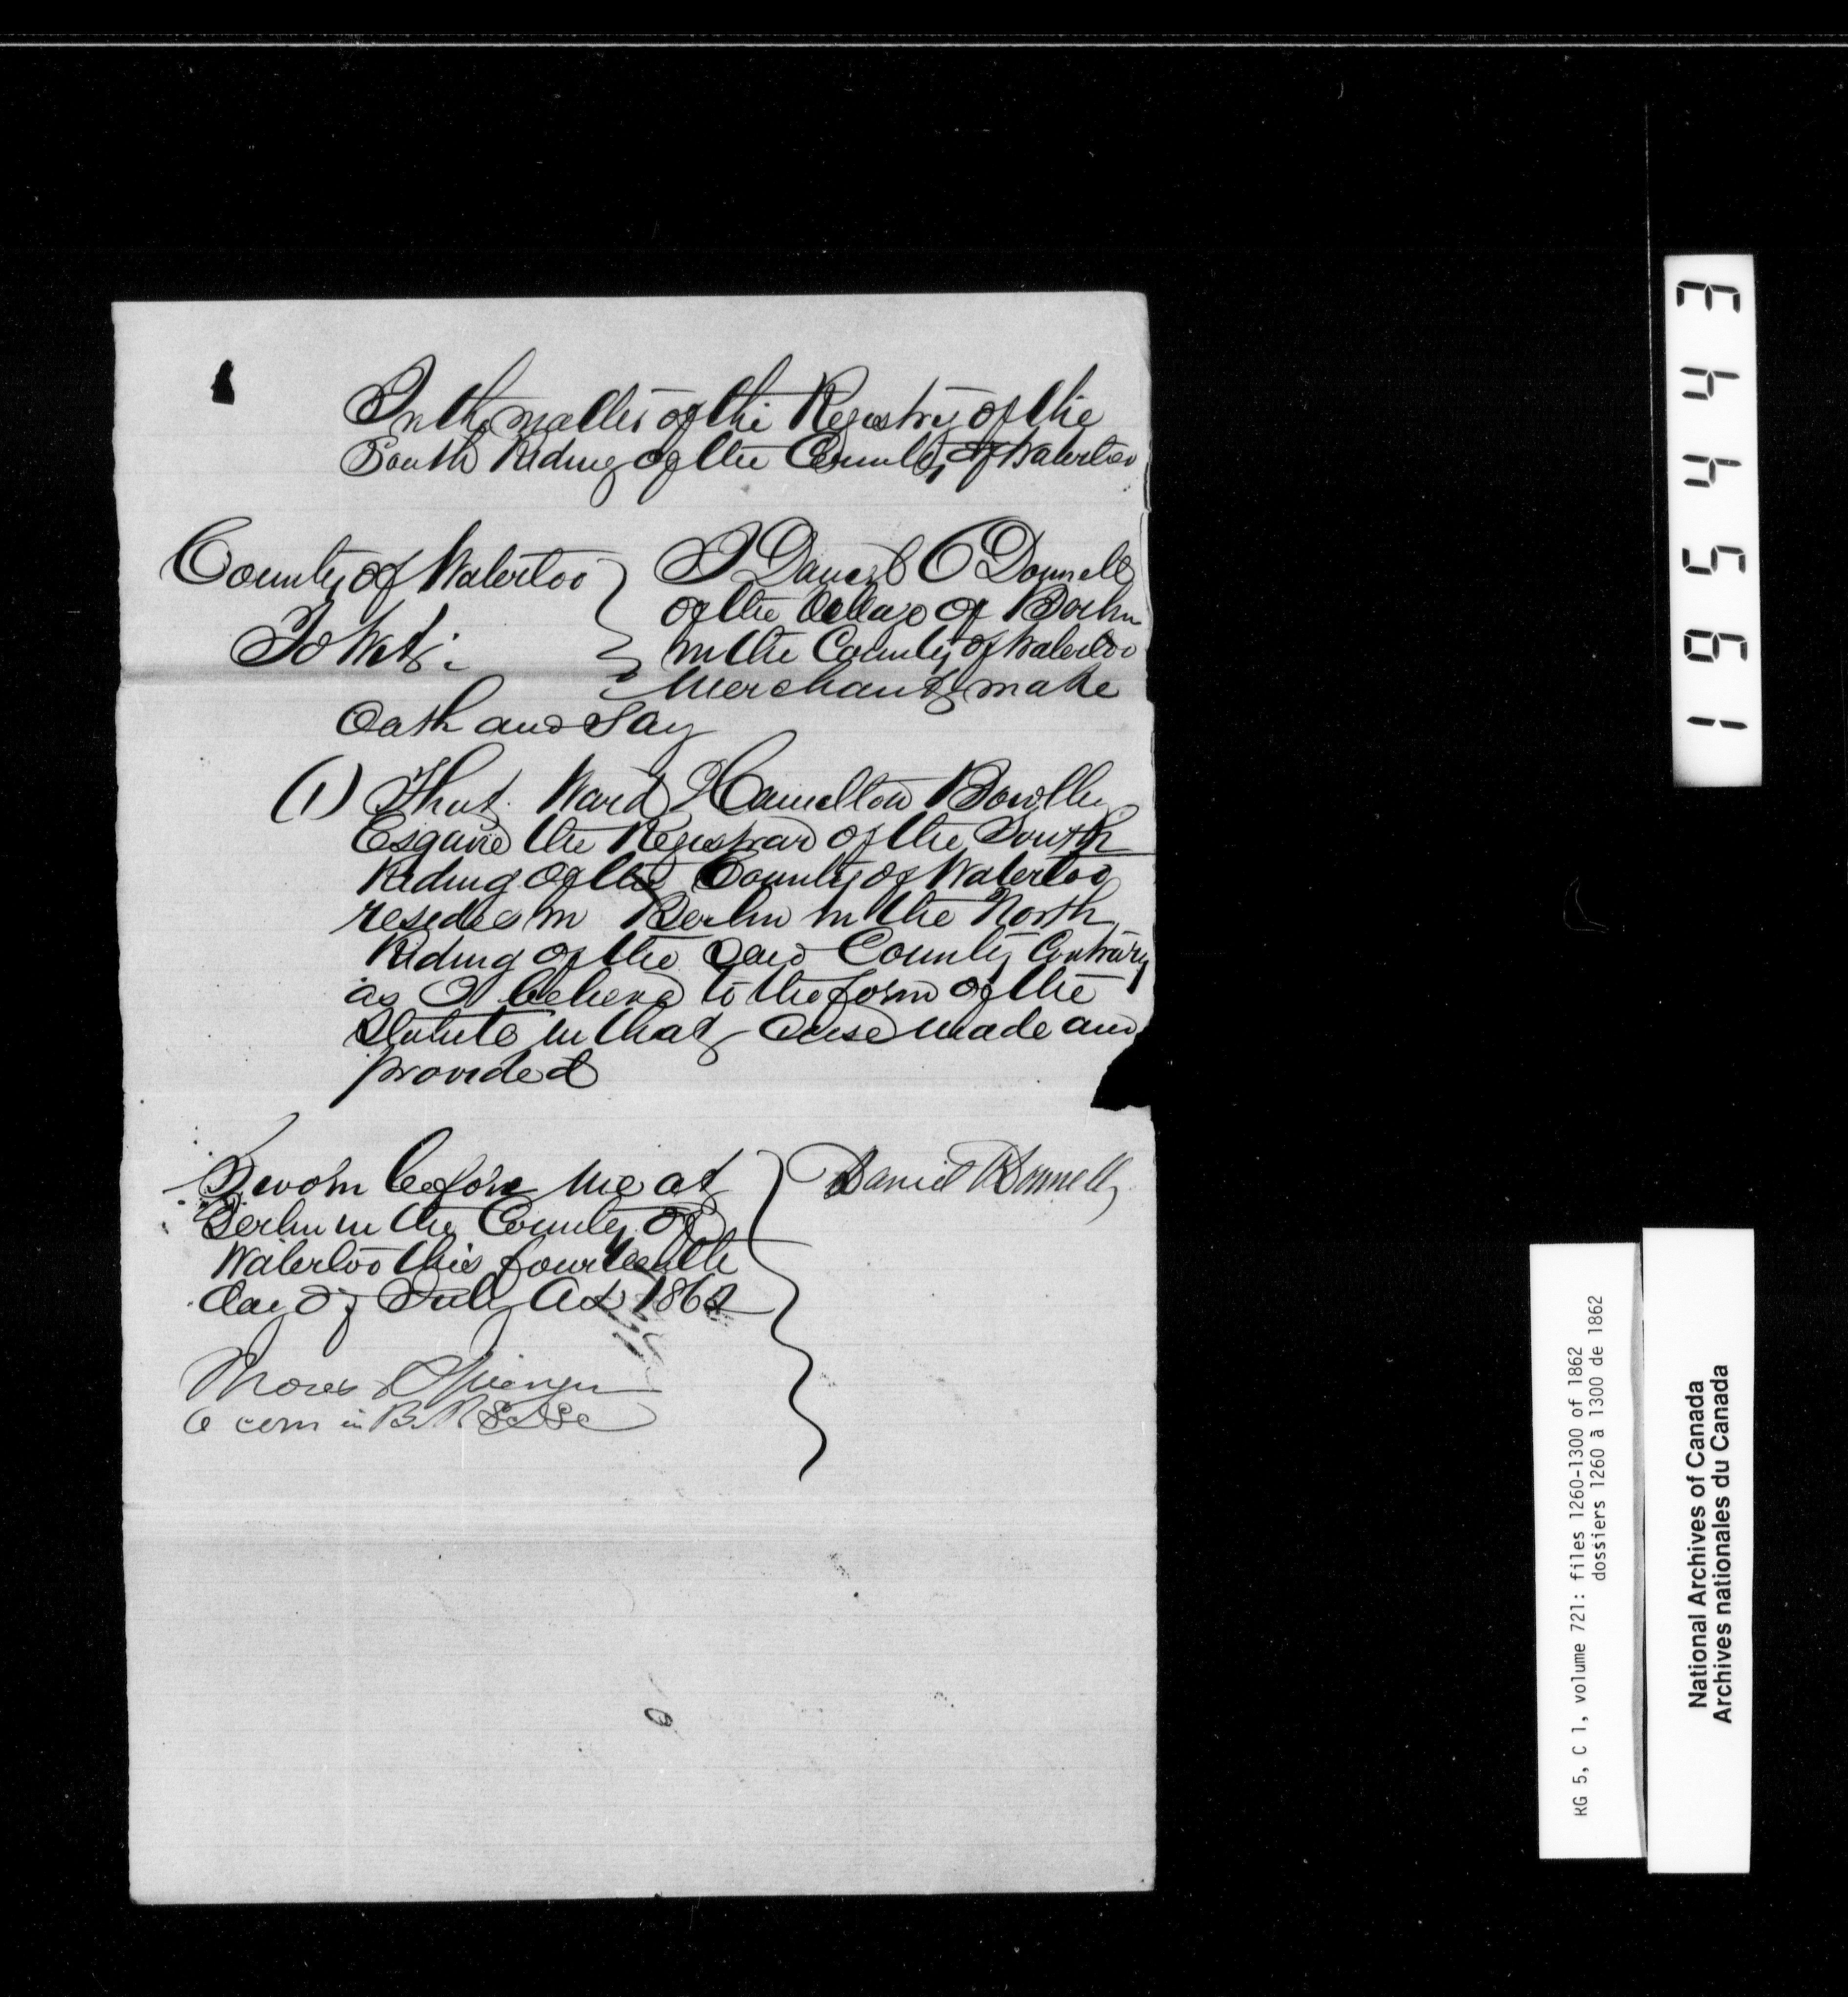 In the matter of the Registry of the
South Riding of the County of Waterloo
County of Waterloo
To Wit :
I Daniel O Donnell
of the Village of Berlin
in the County of Waterloo
Merchant make
Oath and Say
(1) That Ward Hamilton Bowlby
Esquire the Registrar of the South
Riding of the County of Waterloo
resides in Berlin in the North
Riding of the Said County Contrary
as I believe to the form of the
Statute in that case made and
provided
Sworn before me at
Berlin in the County of
Waterloo this fourteenth
day of July AD 1862
Daniel ODonnell
Moses Springer
a com in B.R &c &c
1615443
RG 5, C 1, volume 721: files 1260-1300 of 1862
dossiers 1260 à 1300 de 1862
National Archives of Canada
Archives nationales du Canada